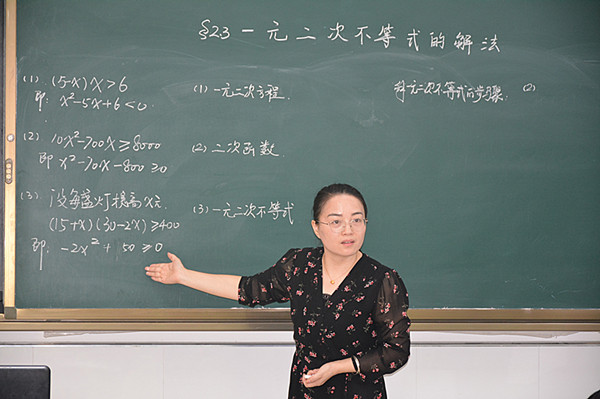 §2.3 一元二次不等式的解法
(1) (5-x)x>6
即: x²-5x+6<0.
(2) 10x²-700x≥8000
即 x²-70x-800≥0
(3) 设每盏灯提高x元.
(15+x)(30-2x)≥400
即: -2x²+ 50≥0
(1) 一元二次方程.
(2) 二次函数.
(3) 一元二次不等式
元二次不等式的 (2)